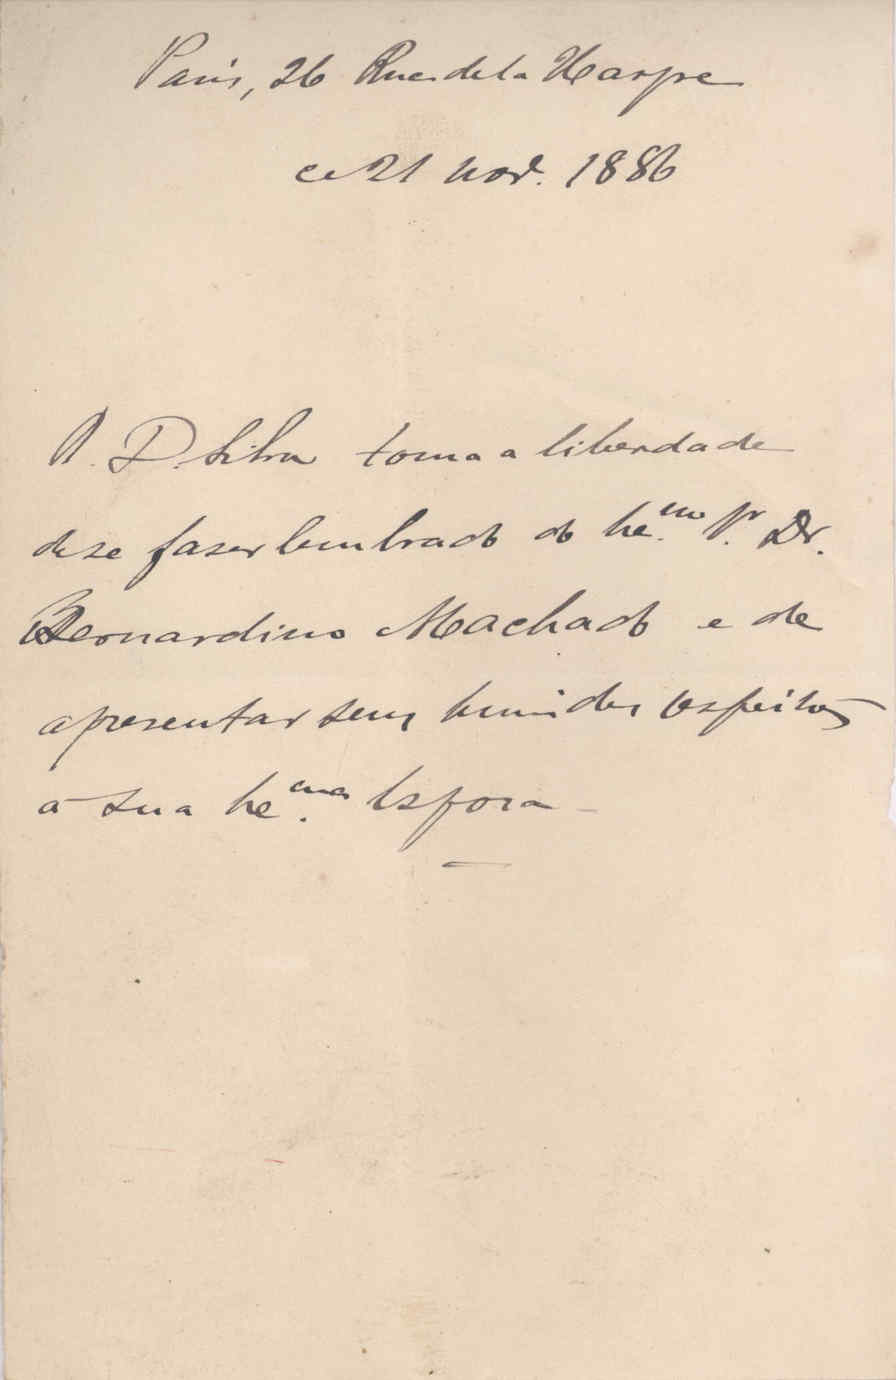 Paris, 26 Rue de la Harpe
ce 21 nov. 1886
A. D. Silva toma a liberdade
de se faser lembrado do Exe.mo Sr. Dr.
Bernardino Machado e de
apresentar seus humildes respeitos
a sua Exe.ma Esposa